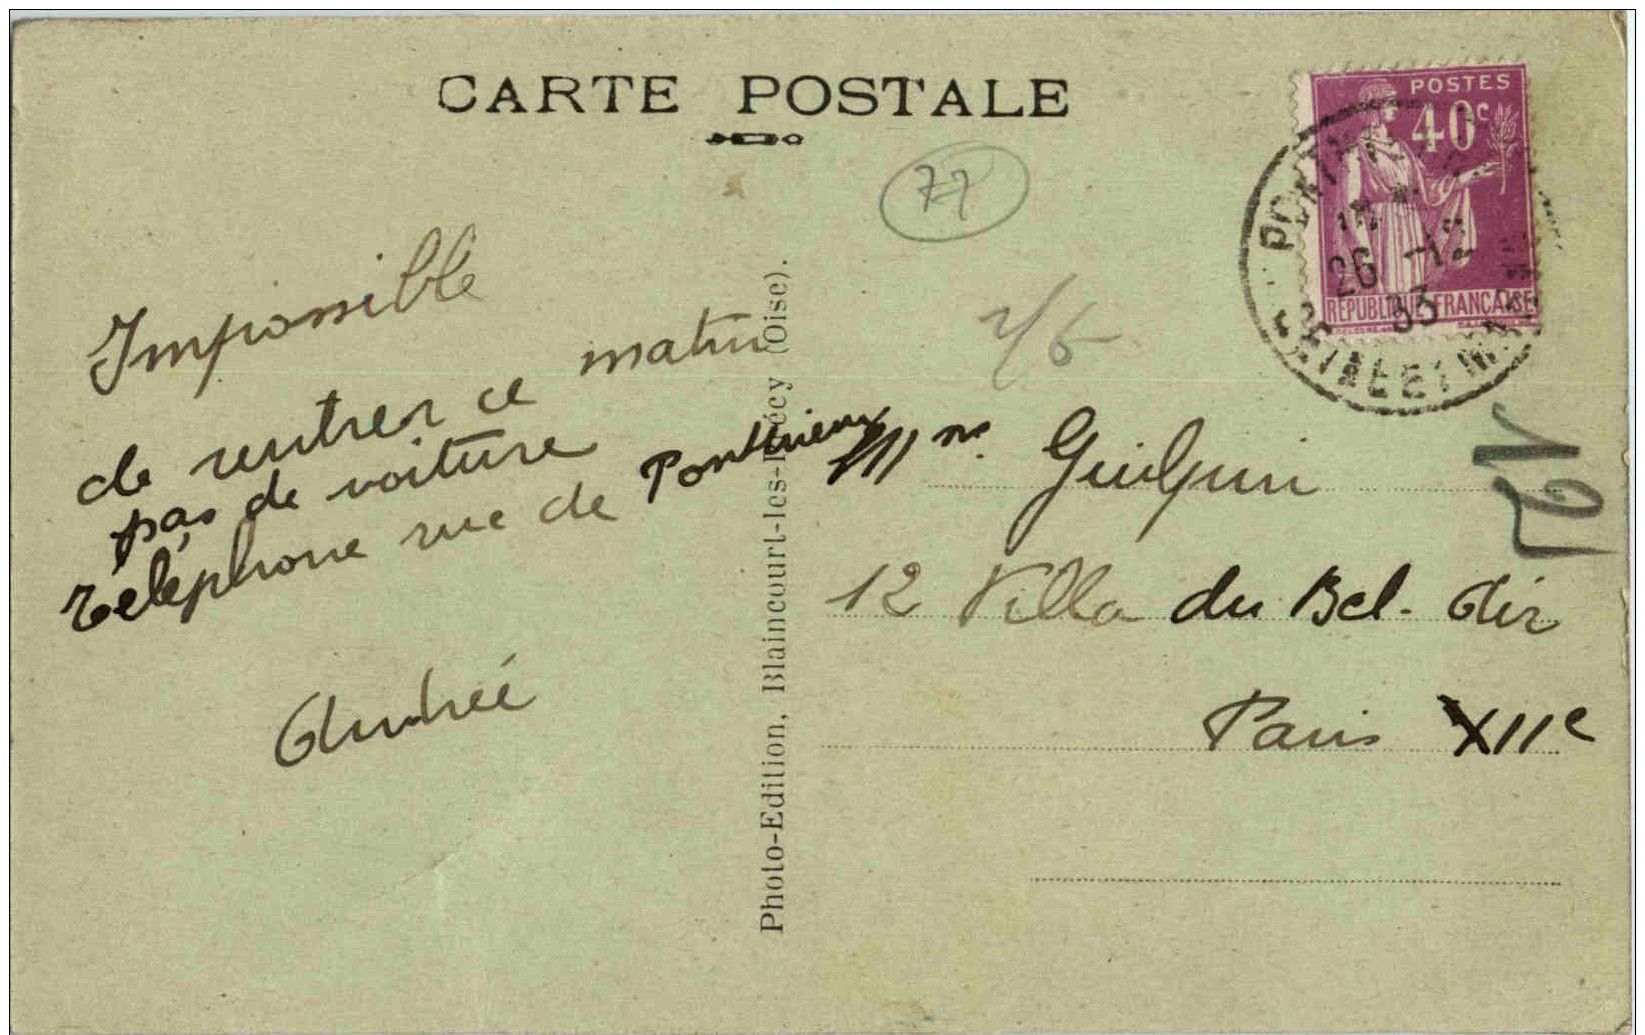 CARTE POSTALE
POSTES
40c
REPUBLIQUE FRANÇAISE
26 -12
33
SEINE ET M
77
Impossible
de rentrer ce matin
pas de voiture
téléphone rue de Ponthieu
Andrée
Photo-Edition, Blaincourt-les-Précy (Oise).
Guilpin
12 Villa du Bel-Air
Paris XIIe